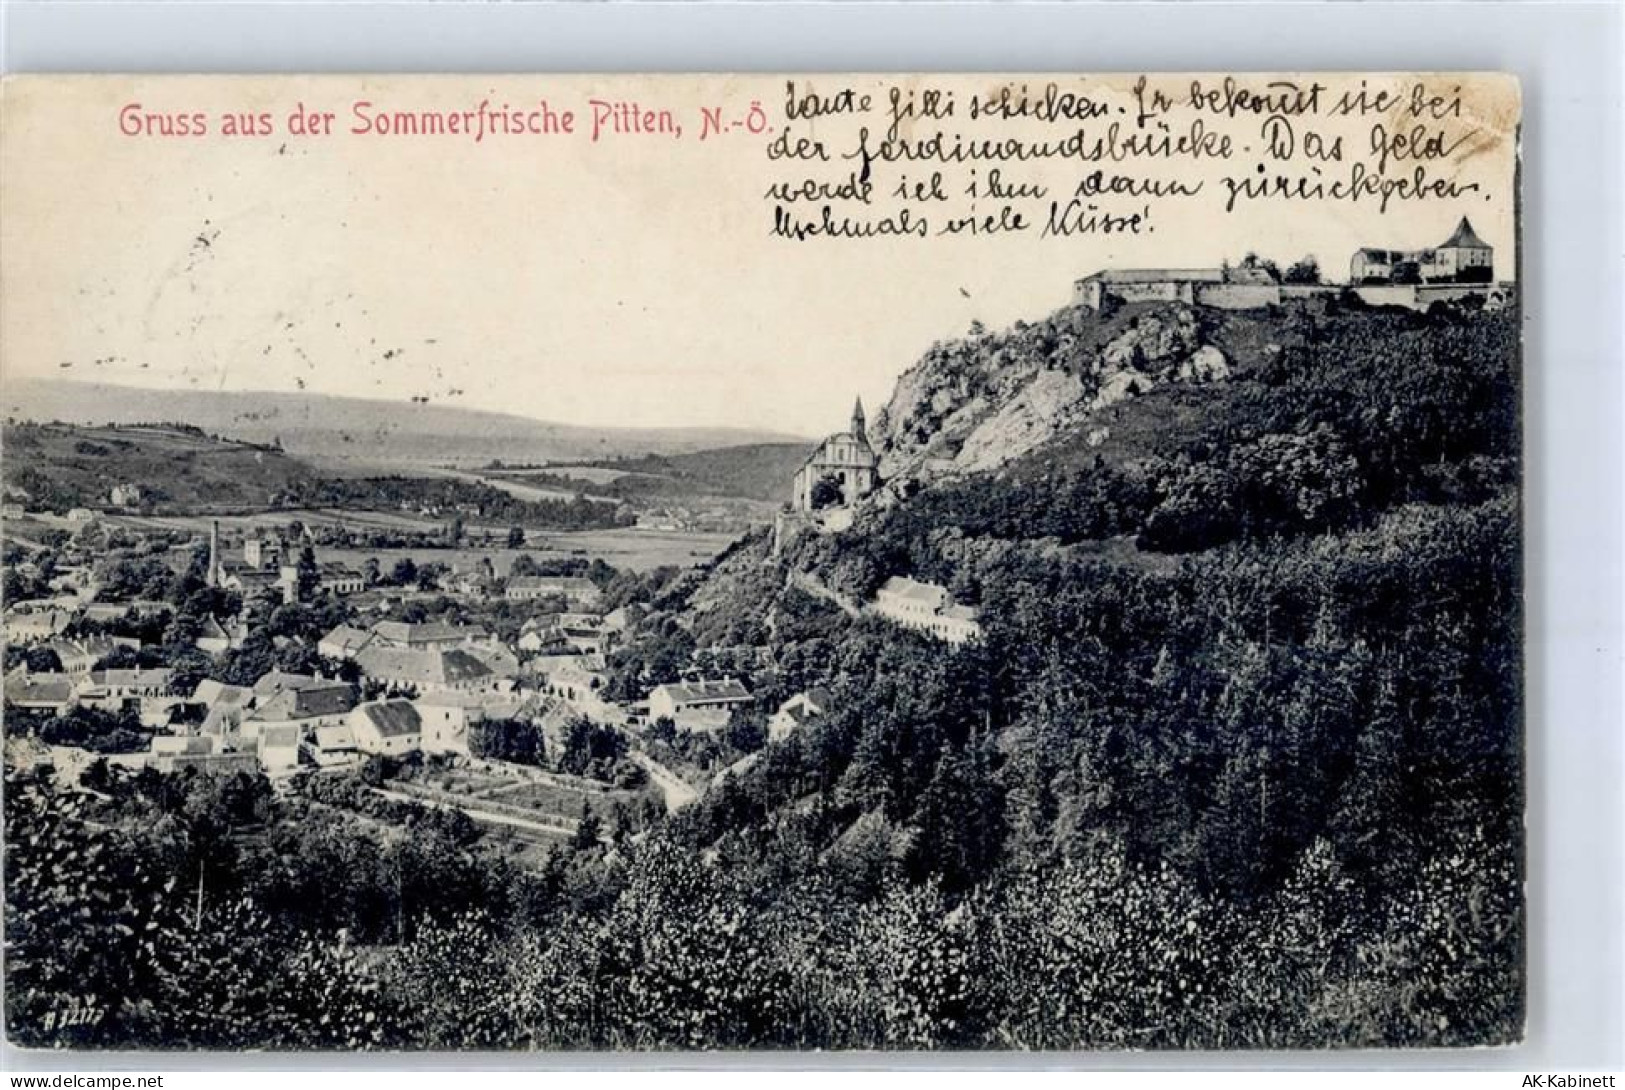 Gruss aus der Sommerfrische Pitten, N.-Ö.
Tante Gilli schicken. Er bekommt sie bei
der Ferdinandsbrücke. Das Geld
werde ich ihm dann zurückgeben.
Nochmals viele Küsse!
AK-Kabinett